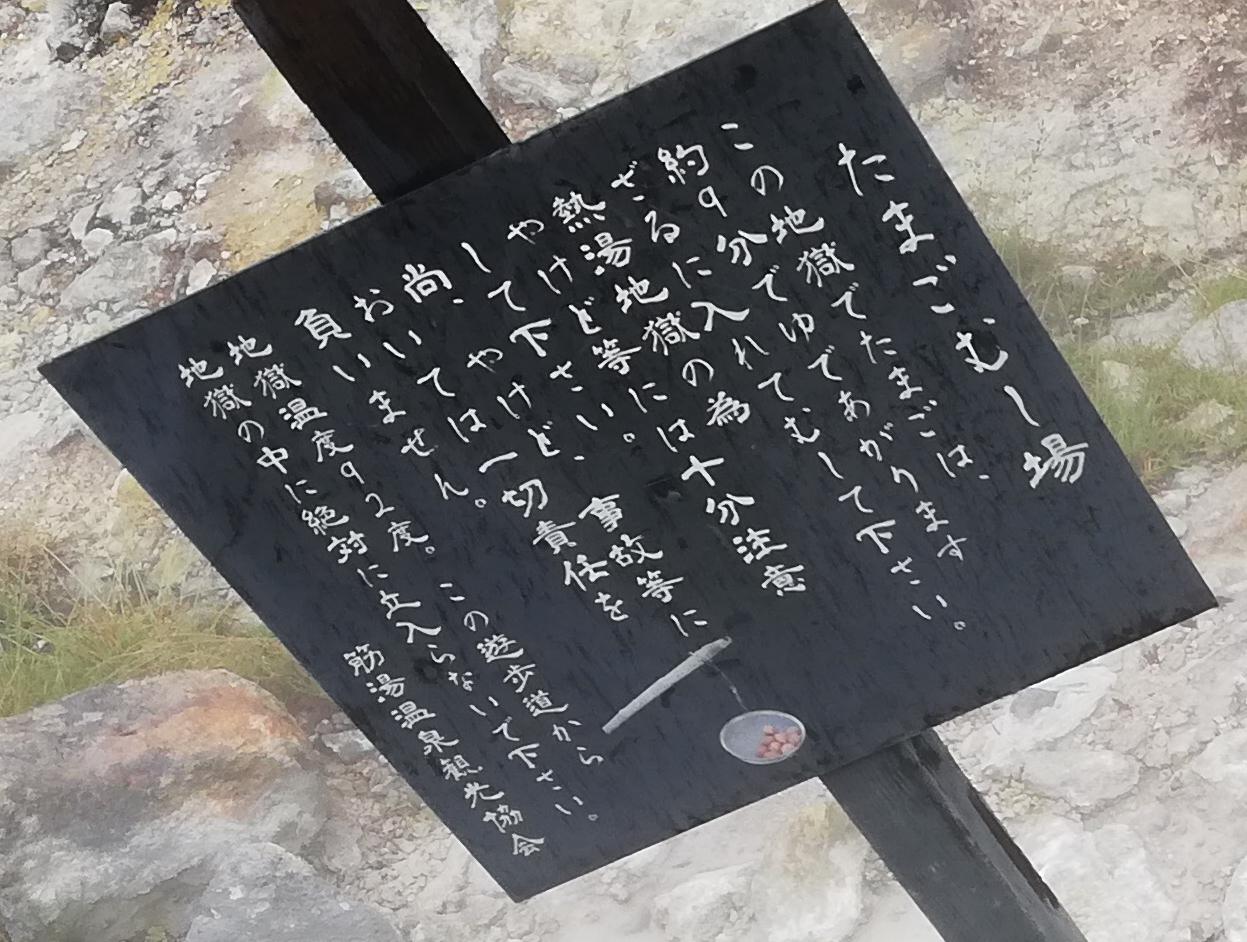 たまごむし場
この地獄でたまごは、
約9分でゆであがります
ざるに入れてむして下さい。
熱湯地獄の為
やけど等には十分注意
して下さい。
尚、やけど、事故等に
おいては一切責任を
負いません。
地獄温度92度。この遊歩道から
地獄の中に絶対に立入らないで下さい。
筋湯温泉観光協会